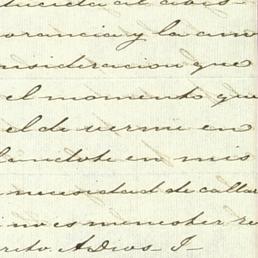 ducida al abis-
orancia y la am
nsideracion que
el momento que
el de verme en
landote en mis
necesidad de callar
no es menester re
creto. A Dios J-